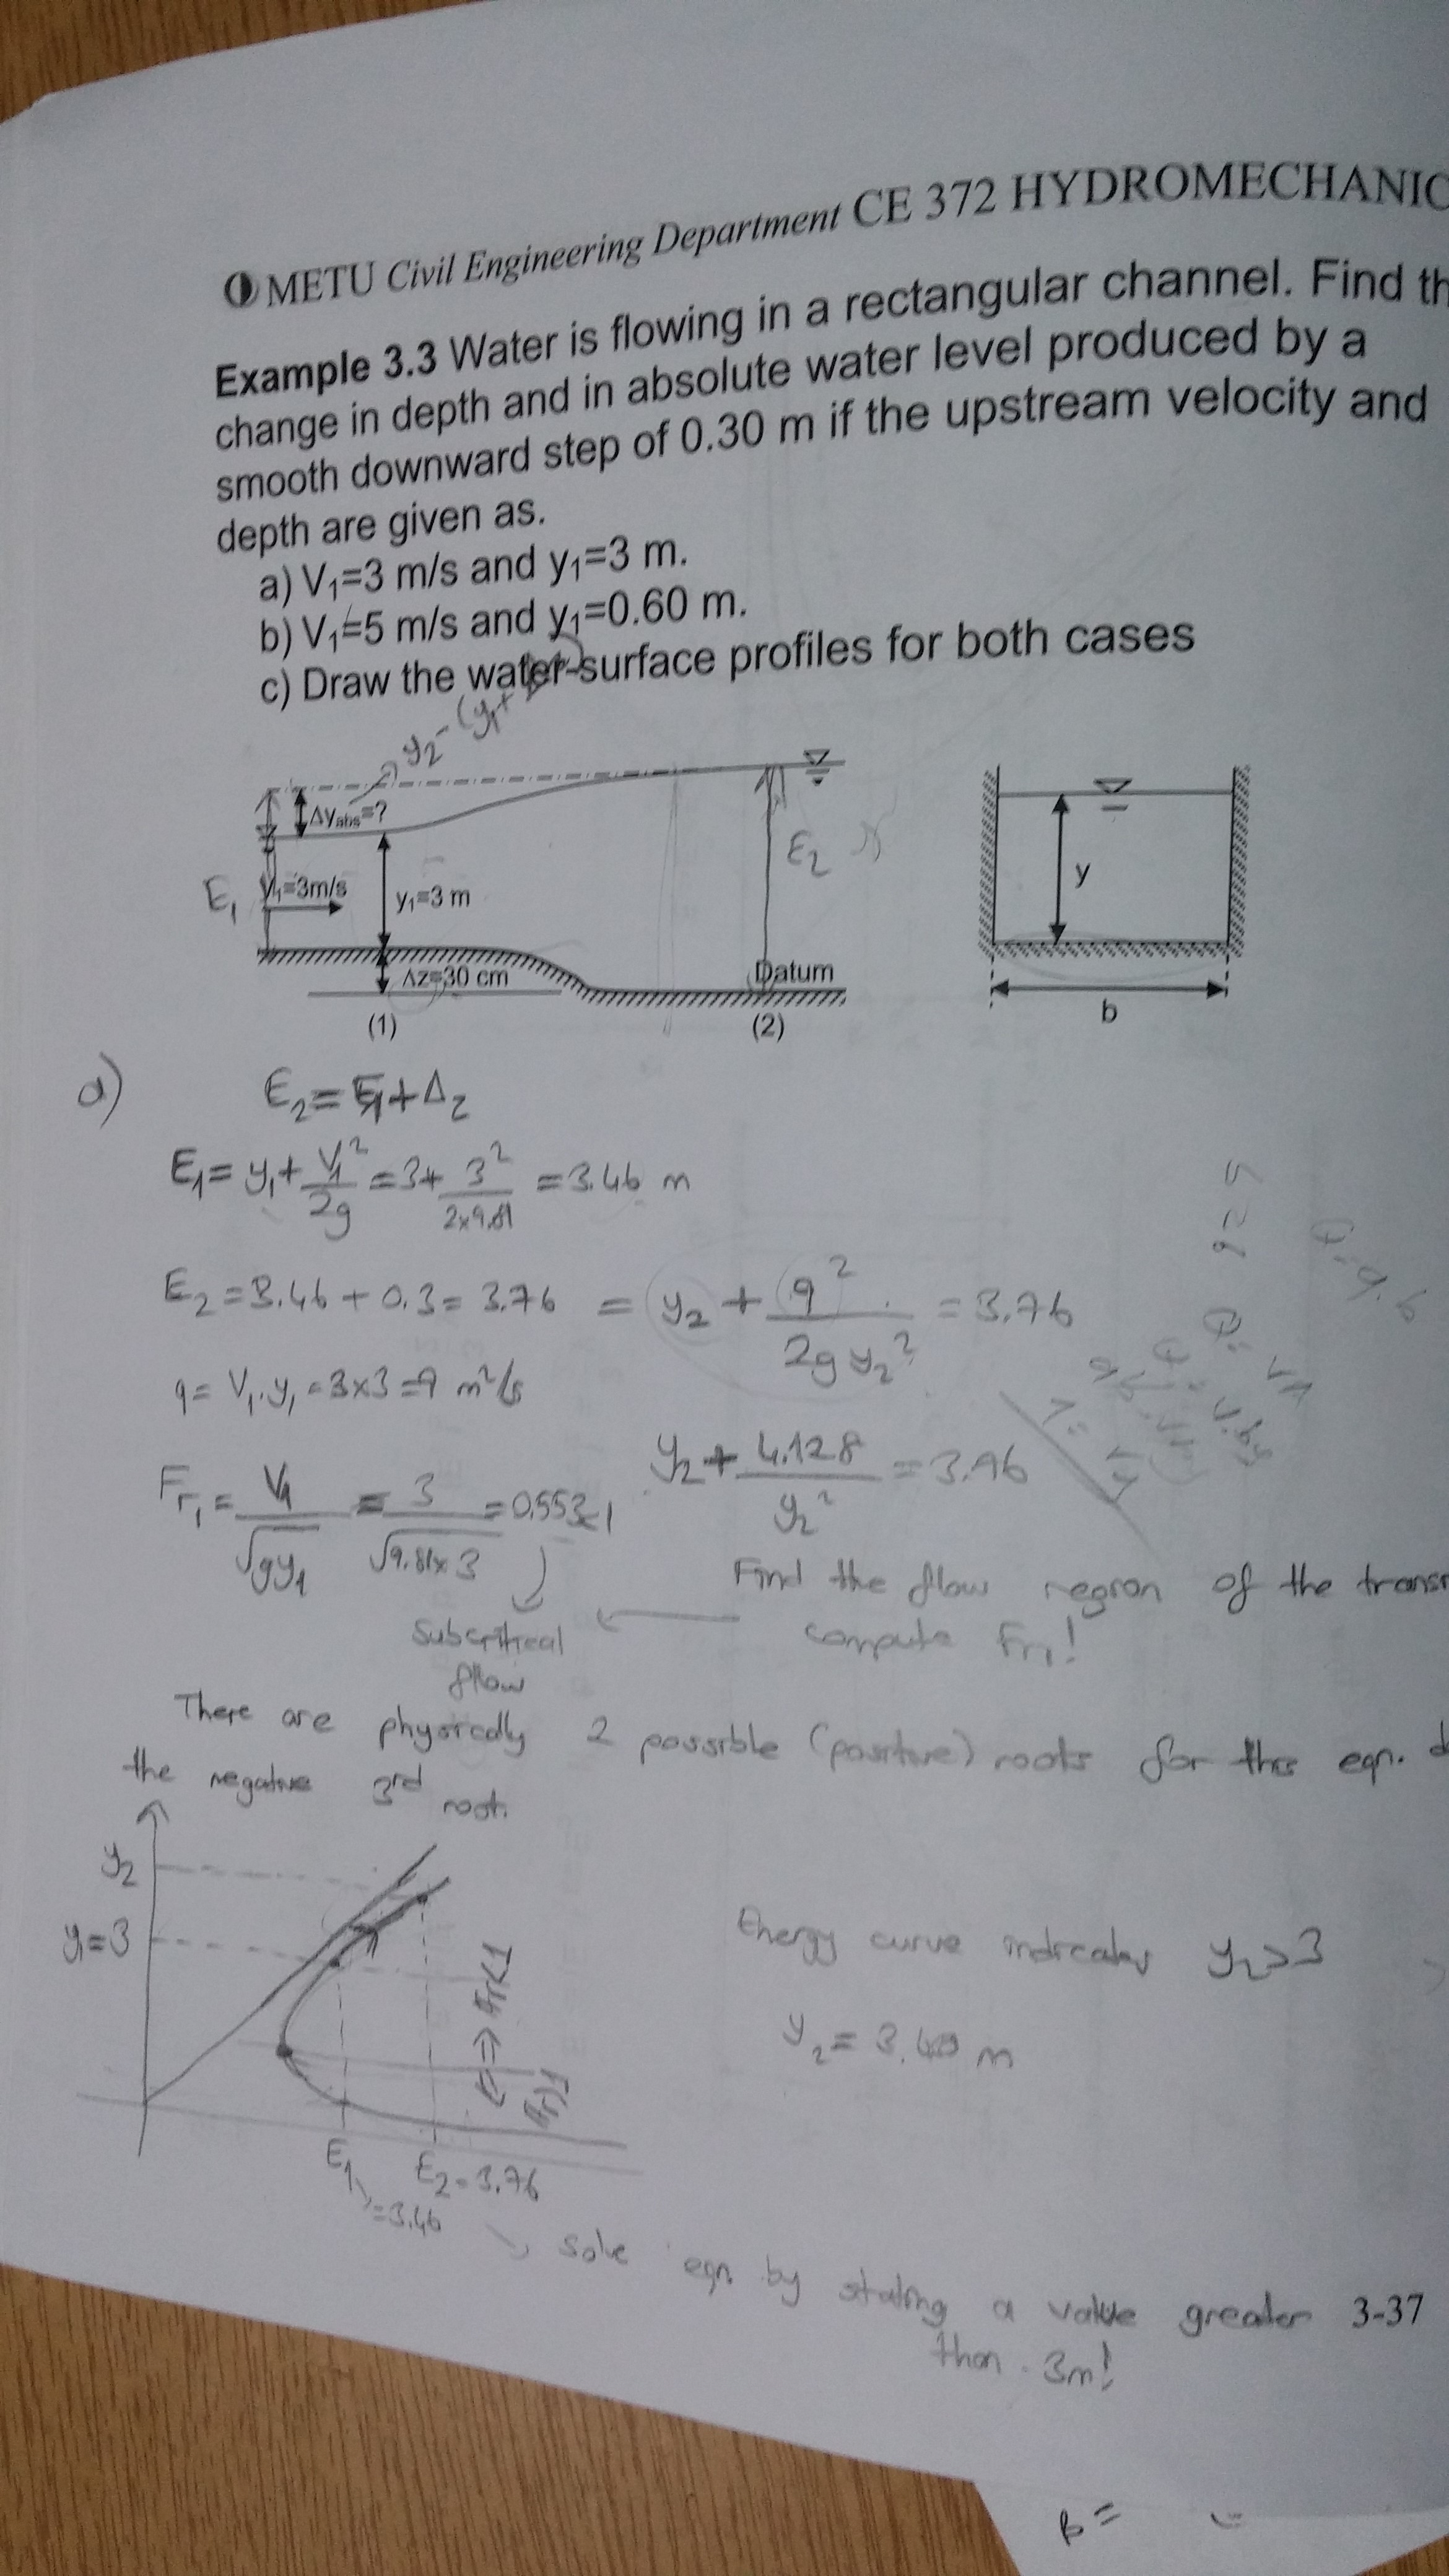 METU Civil Engineering Department CE 372 HYDROMECHANIC
Example 3.3 Water is flowing in a rectangular channel. Find th
change in depth and in absolute water level produced by a
smooth downward step of 0.30 m if the upstream velocity and
depth are given as.
a) V₁=3 m/s and y₁=3 m.
b) V₁=5 m/s and y₁=0.60 m.
c) Draw the water-surface profiles for both cases
y₂ - (y₁ +
Δy_abs=?
E₁
V₁=3m/s
y₁=3 m
E₂
y
Δz=30 cm
Datum
(1)
(2)
b
a)
E₂ = E₁ + Δz
E₁ = y₁ + V₁²/2g = 3 + 3²/2x9.81 = 3.46 m
E₂ = 3.46 + 0.3 = 3.76 = y₂ + q²/2g y₂² = 3.76
q = V₁.y₁ = 3x3 = 9 m²/s
Fr₁ = V₁/√gy₁ = 3/√9.81x3 = 0.553<1
y₂ + 4.128/y₂² = 3.76
Find the flow region of the trans
compute Fr₁!
Subcritical
flow
There are physically 2 possible (positive) roots for the eqn.
the negative 3rd root.
y₂
y₁=3
Fr<1
Fr>1
E₁
=3.46
E₂=3.76
Energy curve indicates y₂>3
y₂ = 3.40 m
solve eqn. by stating a value greater
than 3m!
3-37